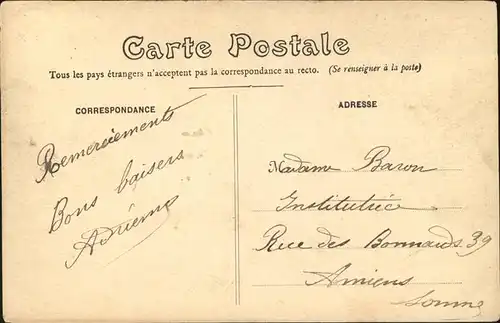 Carte Postale
Tous les pays étrangers n'acceptent pas la correspondance au recto. (Se renseigner à la poste)
CORRESPONDANCE
Remerciements
Bons baisers
ADRESSE
Madame Baron
Institutrice
Rue des 39
Amiens
Somme